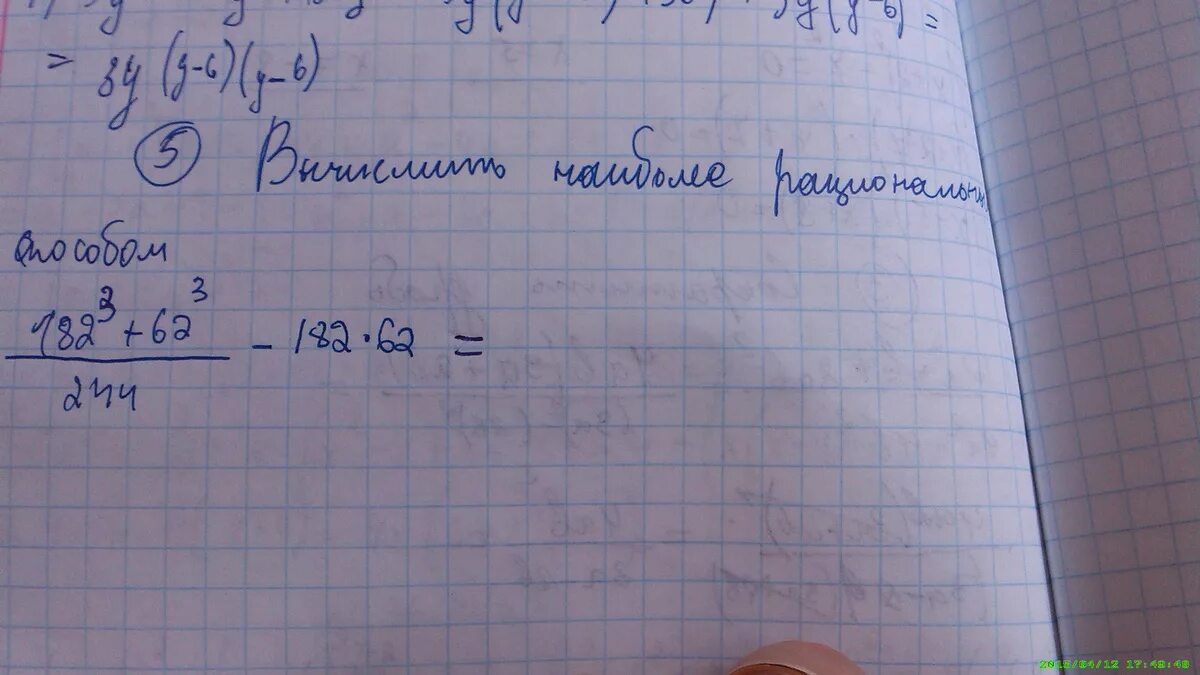 = 3y (y-6)(y-6)
⑤ Вычислить наиболее рациональным
способом
182³ + 62³
244
- 182 · 62 =
2015/04/12 17:49:49